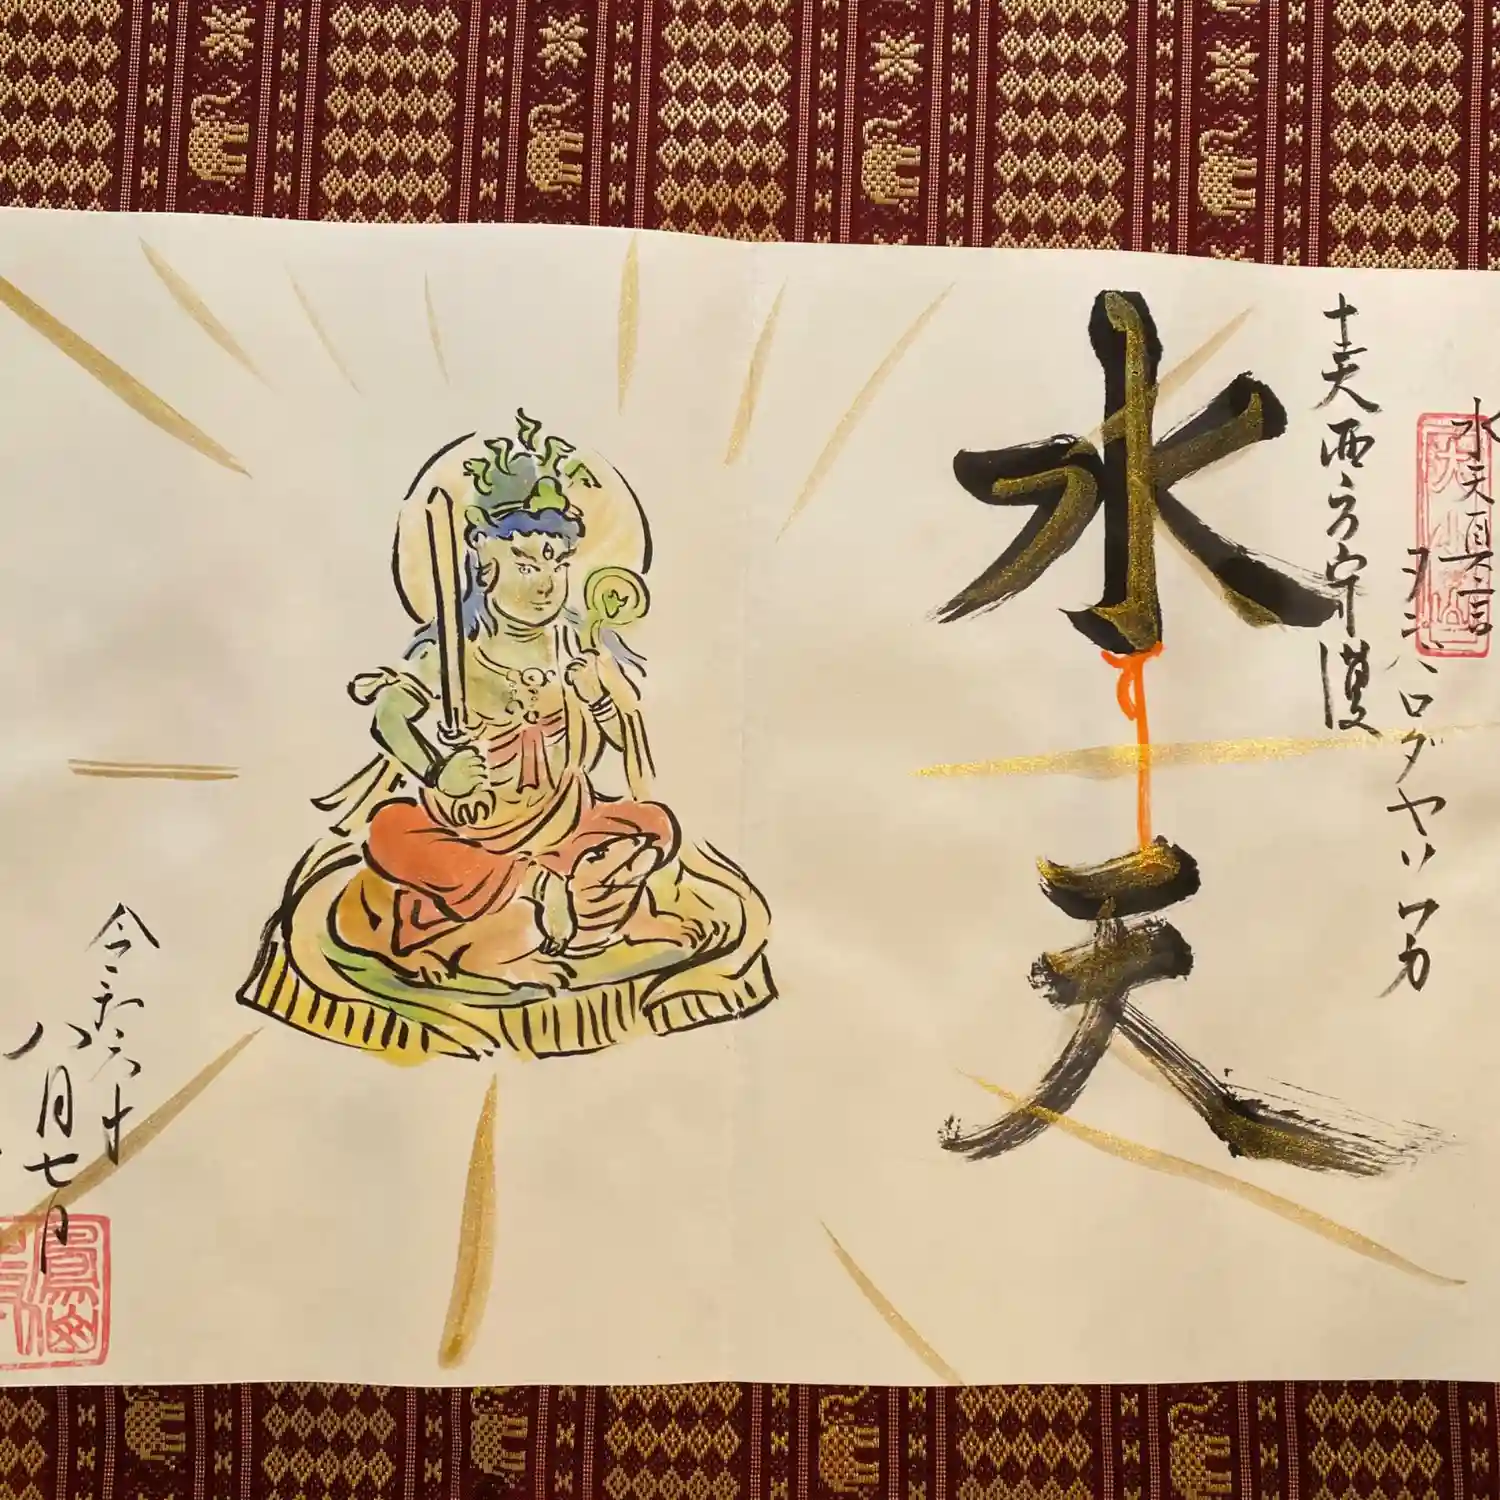 水天真言
ヲンバロダヤソワカ
十二天西方守護
水天
令和六年
八月七日